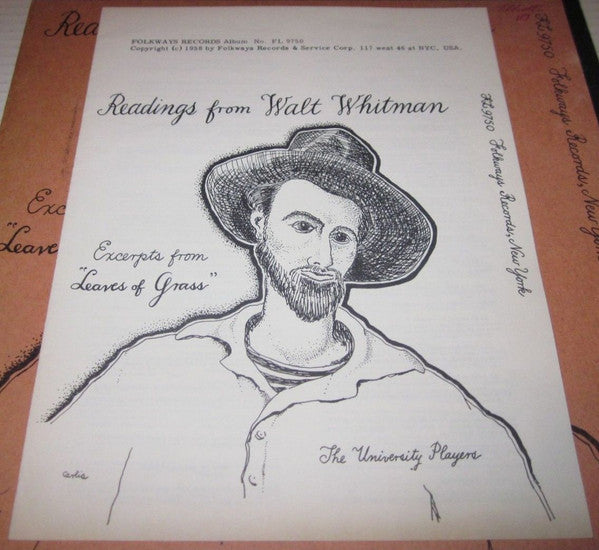 FOLKWAYS RECORDS Album No. FL 9750
Copyright (c) 1958 by Folkways Records & Service Corp. 117 west 46 st NYC, USA.
Readings from Walt Whitman
FL9750 Folkways Records, New York
Excerpts from
"Leaves of Grass"
The University Players
Rea
Exc
"Leave
FL9750 Folkways Records, New York